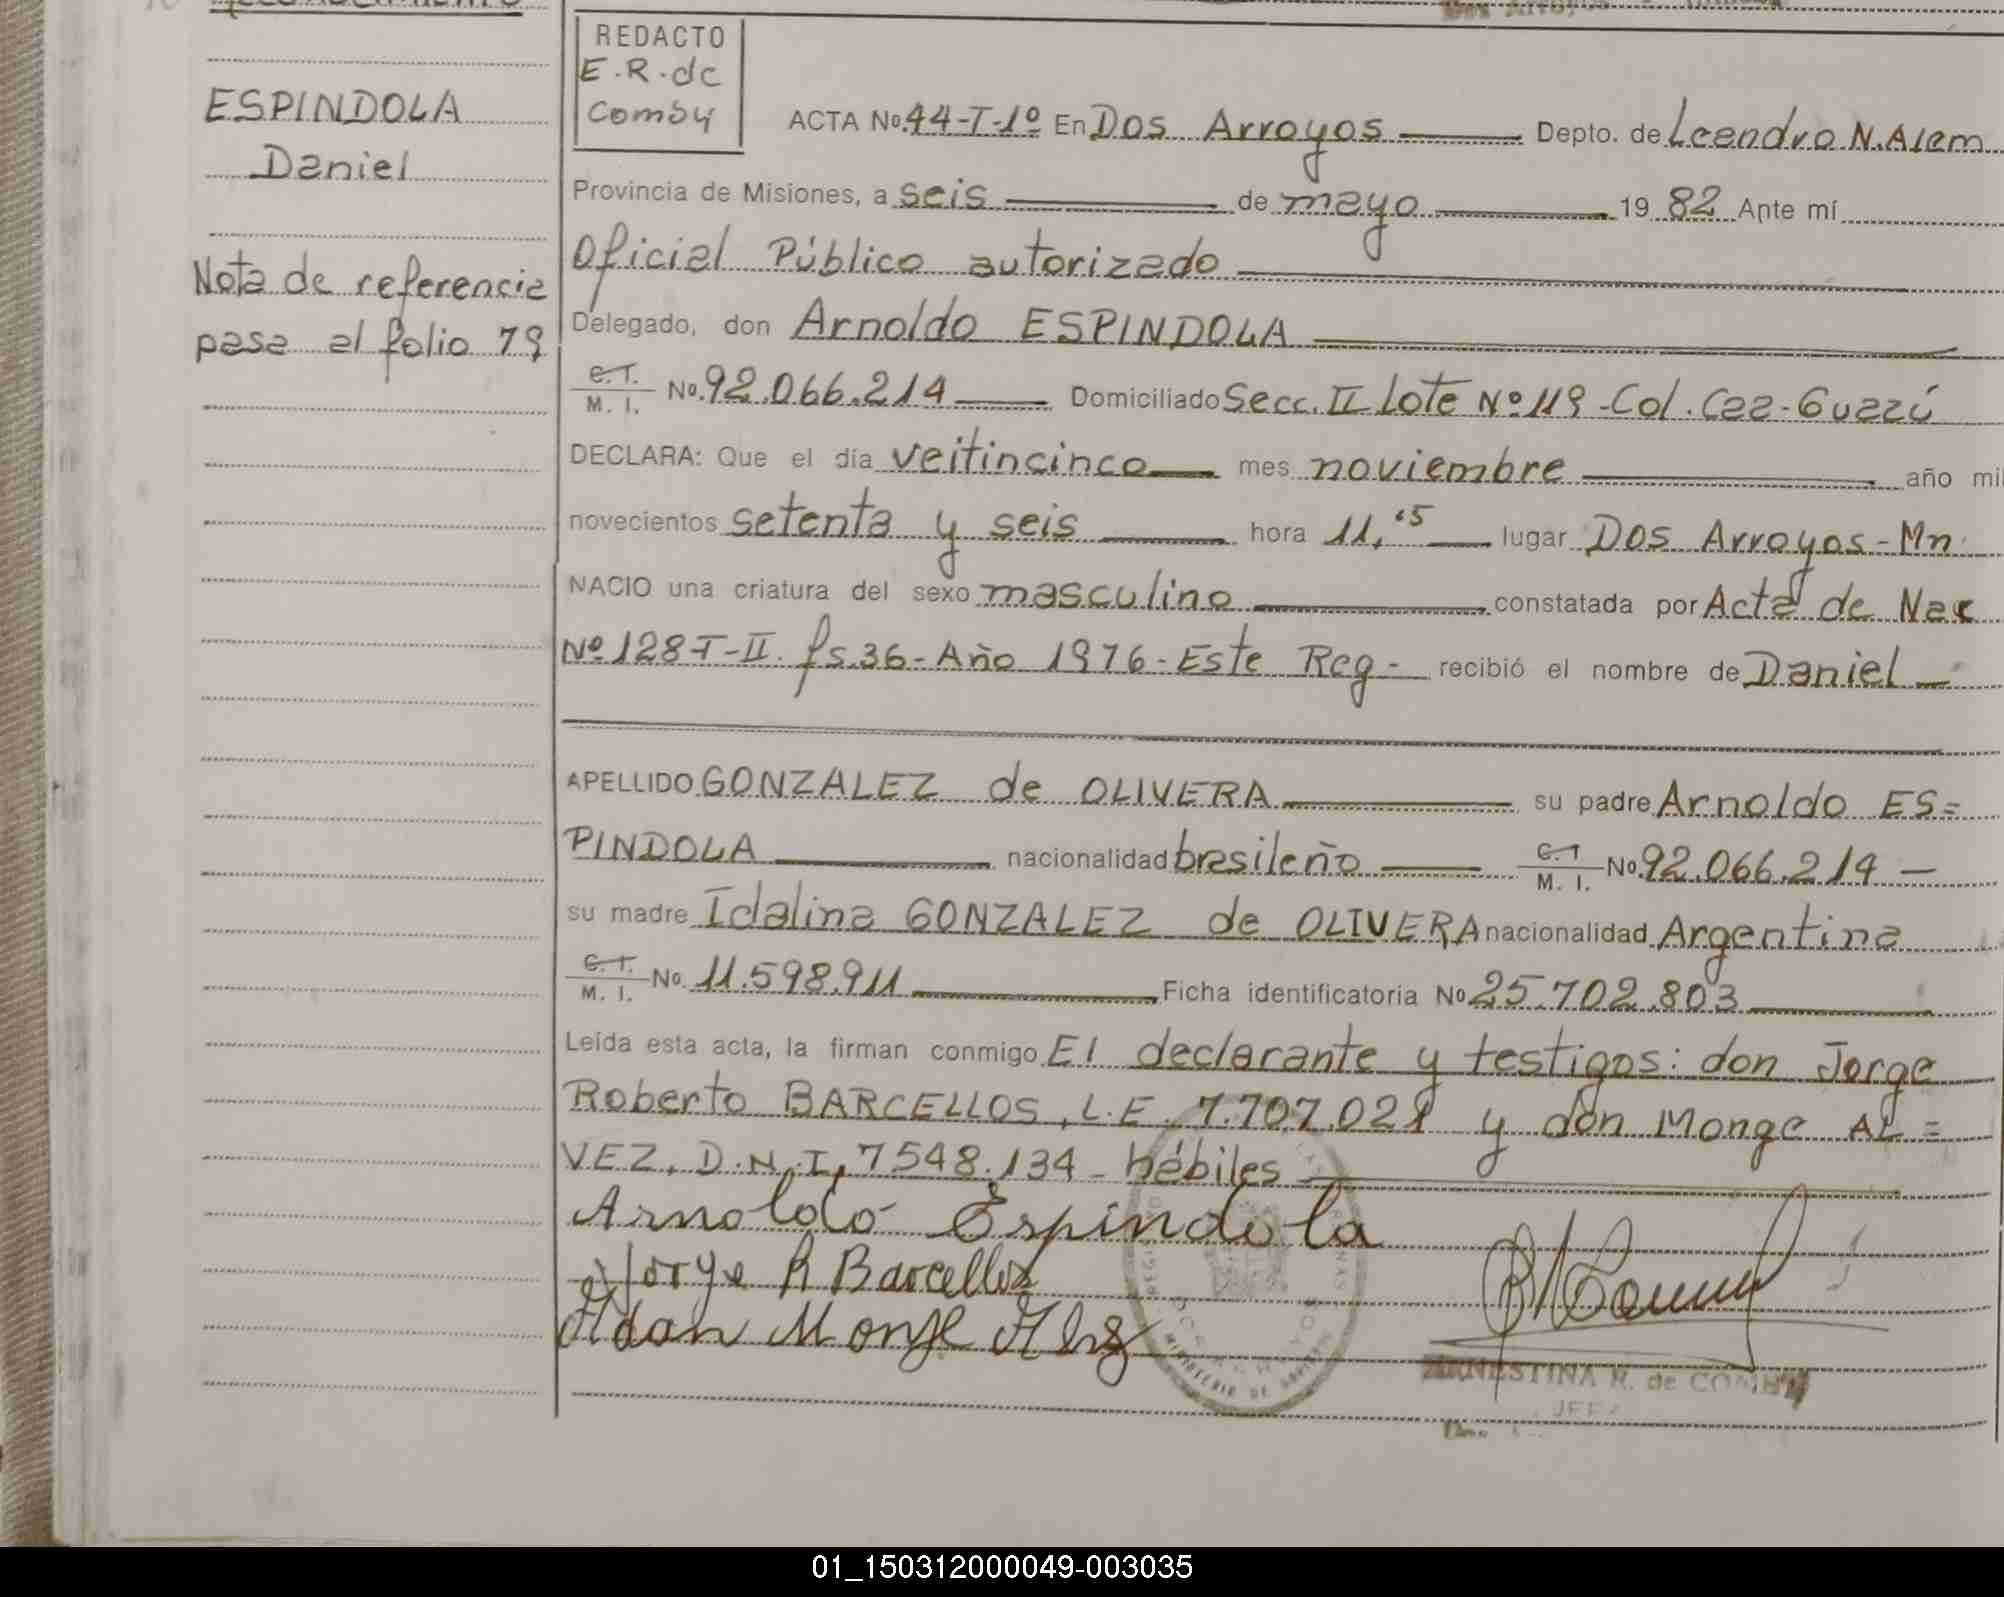 REDACTO
E.R.de
Comby
ESPINDOLA
Daniel
Nota de referencia
pasa al folio 79
ACTA No.44-T-1º En Dos Arroyos Depto. de Leandro N. Alem
Provincia de Misiones, a seis de mayo 19 82 Ante mí
Oficial Público autorizado
Delegado, don Arnoldo ESPINDOLA
C.T. M. I. No.92.066.214 Domiciliado Secc. II Lote Nº 119-Col. Caa-Guazú
DECLARA: Que el día veitincinco mes noviembre año mil
novecientos setenta y seis hora 11,15 lugar Dos Arroyos-Mn.
NACIO una criatura del sexo masculino constatada por Acta de Nac
Nº 128-T-II. fs.36-Año 1976-Este Reg- recibió el nombre de Daniel
APELLIDO GONZALEZ de OLIVERA su padre Arnoldo ES=
PINDOLA nacionalidad brasileño C.T. M. I. No.92.066.214
su madre Idalina GONZALEZ de OLIVERA nacionalidad Argentina
C.T. M. I. No. 11.598.911 Ficha identificatoria No 25.702.803
Leída esta acta, la firman conmigo El declarante y testigos: don Jorge
Roberto BARCELLOS, L.E. 7.707.021 y don Monge AL=
VEZ, D.N.I, 7548.134 - hábiles
Arnoldo Espindola
Jorge R Barcellos
Adan Monge
ERNESTINA R. de COMBY
JEFA
01_150312000049-003035